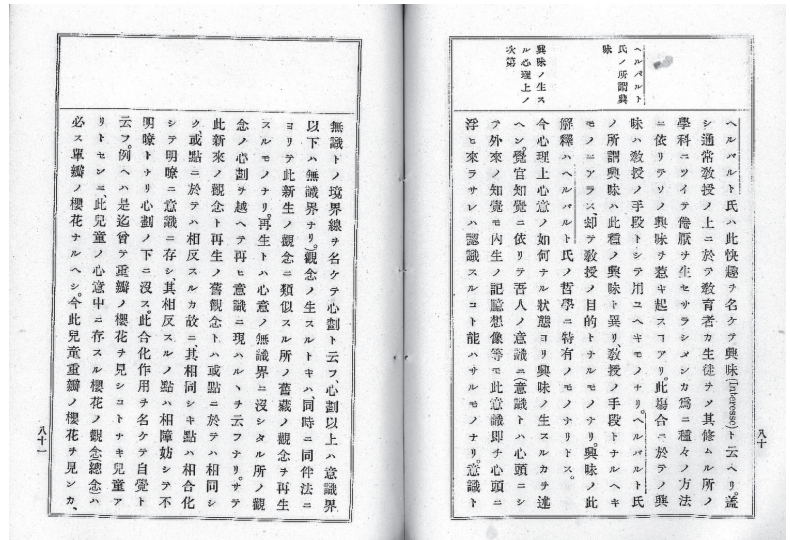 ヘルバルト
氏ノ所謂興
味
興味ノ生ス
ル心理上ノ
次第
ヘルバルト氏ハ此快趣ヲ名ケテ興味(Interesse)ト云ヘリ。蓋
シ通常教授ノ上ニ於テ教育者カ生徒ヲシテ其修ムル所ノ
學科ニツイテ倦厭ヲ生セサラシメンカ爲ニ種々ノ方法
ニ依リテソノ興味ヲ惹キ起スコアリ。此場合ニ於テノ興
味ハ教授ノ手段トシテ用ユヘキモノナリ。ヘルバルト氏
ノ所謂興味ハ此種ノ興味ト異リ、教授ノ手段トナルヘキ
モノニアラス、却テ教授ノ目的トナルモノナリ。興味ノ此
解釋ハヘルバルト氏ノ哲學ニ特有ノモノナリトス。
今心理上心意ノ如何ナル狀態ヨリ興味ノ生スルカヲ述
ヘン。覺官知覺ニ依リテ吾人ノ意識ニ(意識トハ心頭ニシ
テ外來ノ知覺モ内生ノ記臆想像等モ此意識即チ心頭ニ
浮ヒ來ラサレハ認識スルコト能ハサルモノナリ。意識ト
八十
無識トノ境界線ヲ名ケテ心劃ト云フ、心劃以上ハ意識界
以下ハ無識界ナリ。)觀念ノ生スルトキハ、同時ニ同伴法ニ
ヨリテ此新生ノ觀念ニ類似スル所ノ舊藏ノ觀念ヲ再生
スルモノナリ。再生トハ心意ノ無識界ニ沒シタル所ノ觀
念ノ心劃ヲ越ヘテ再ヒ意識ニ現ハルヽヲ云フナリ。サテ
此新來ノ觀念ト再生ノ舊觀念トハ或點ニ於テハ相同シ
ク、或點ニ於テハ相反スルカ故ニ、其相同シキ點ハ相合化
シテ明瞭ニ意識ニ存シ、其相反スルノ點ハ相障妨シテ不
明瞭トナリ心劃ノ下ニ沒ス。此合化作用ヲ名ケテ自覺ト
云フ。例ヘハ是迄曾テ重瓣ノ櫻花ヲ見シコトナキ兒童ア
リトセンニ此兒童ノ心意中ニ存スル櫻花ノ觀念(總念)ハ
必ス單瓣ノ櫻花ナルヘシ。今此兒童重瓣ノ櫻花ヲ見ンカ、
八十一